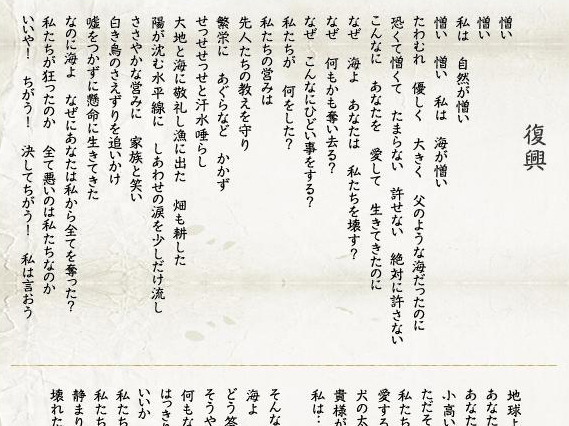 復興
憎い
憎い
私は　自然が憎い
憎い　憎い　私は　海が憎い
たわむれ　優しく　大きく　父のような海だったのに
恐くて憎くて　たまらない　許せない　絶対に許さない
こんなに　あなたを　愛して　生きてきたのに
なぜ　海よ　あなたは　私たちを壊す？
なぜ　何もかも奪い去る？
なぜ　こんなにひどい事をする？
私たちが　何をした？
私たちの営みは
先人たちの教えを守り
繁栄に　あぐらなど　かかず
せっせせっせと汗水唾らし
大地と海に敬礼し漁に出た　畑も耕した
陽が沈む水平線に　しあわせの涙を少しだけ流し
ささやかな営みに　家族と笑い
白き鳥のさえずりを追いかけ
嘘をつかずに懸命に生きてきた
なのに海よ　なぜにあなたは私から全てを奪った？
私たちが狂ったのか　全て悪いのは私たちなのか
いいや！　ちがう！　決してちがう！　私は言おう
地球よ
あなた
あなた
小高い
ただそ
私たち
愛する
犬の太
貴様が
私は…
そんな
海よ
どう答
そうや
何もな
はっき
いいか
私たち
私たち
静まり
壊れた